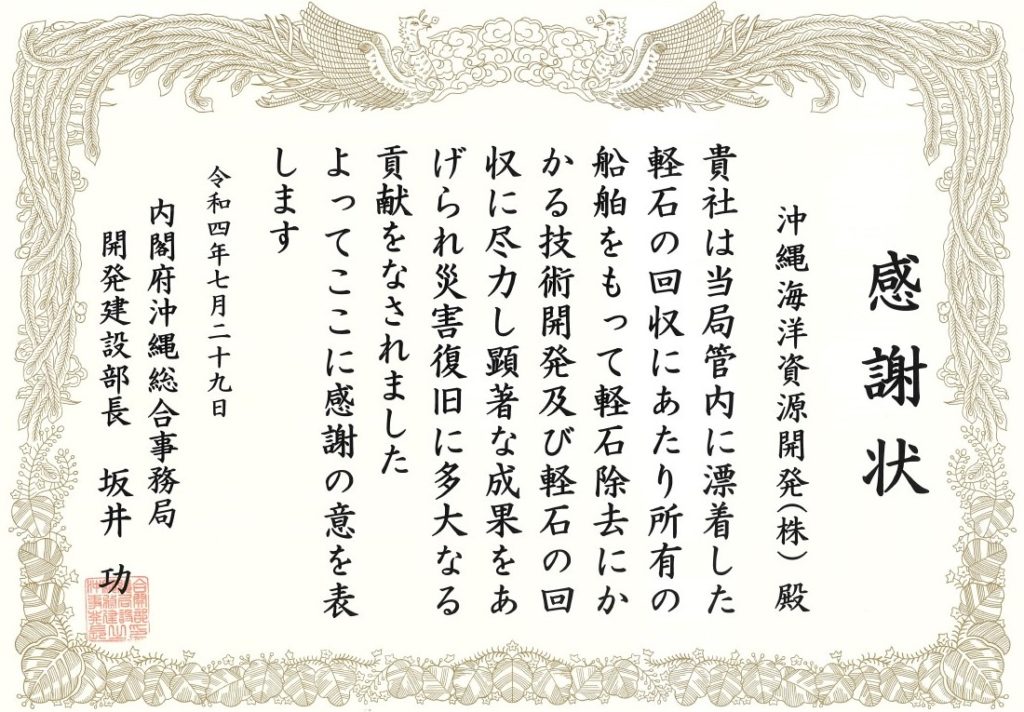 感謝状
沖縄海洋資源開発(株)殿
貴社は当局管内に漂着した
軽石の回収にあたり所有の
船舶をもって軽石除去にか
かる技術開発及び軽石の回
収に尽力し顕著な成果をあ
げられ災害復旧に多大なる
貢献をなされました
よってここに感謝の意を表
します
令和四年七月二十九日
内閣府沖縄総合事務局
開発建設部長 坂井 功